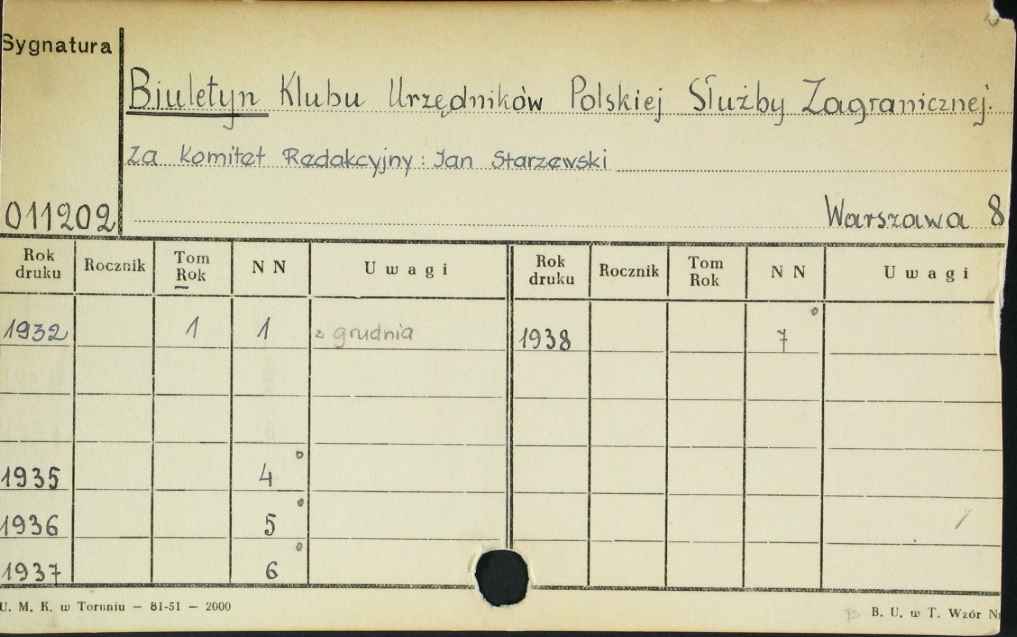 Sygnatura
Biuletyn Klubu Urzędników Polskiej Służby Zagranicznej.
Za Komitet Redakcyjny: Jan Starzewski
011202 Warszawa 8
Rok druku Rocznik Tom Rok N N Uwagi Rok druku Rocznik Tom Rok N N Uwagi
1932 1 1 z grudnia 1938 7
1935 4
1936 5
1937 6
U. M. K. w Toruniu — 81-51 — 2000 B. U. w T. Wzór